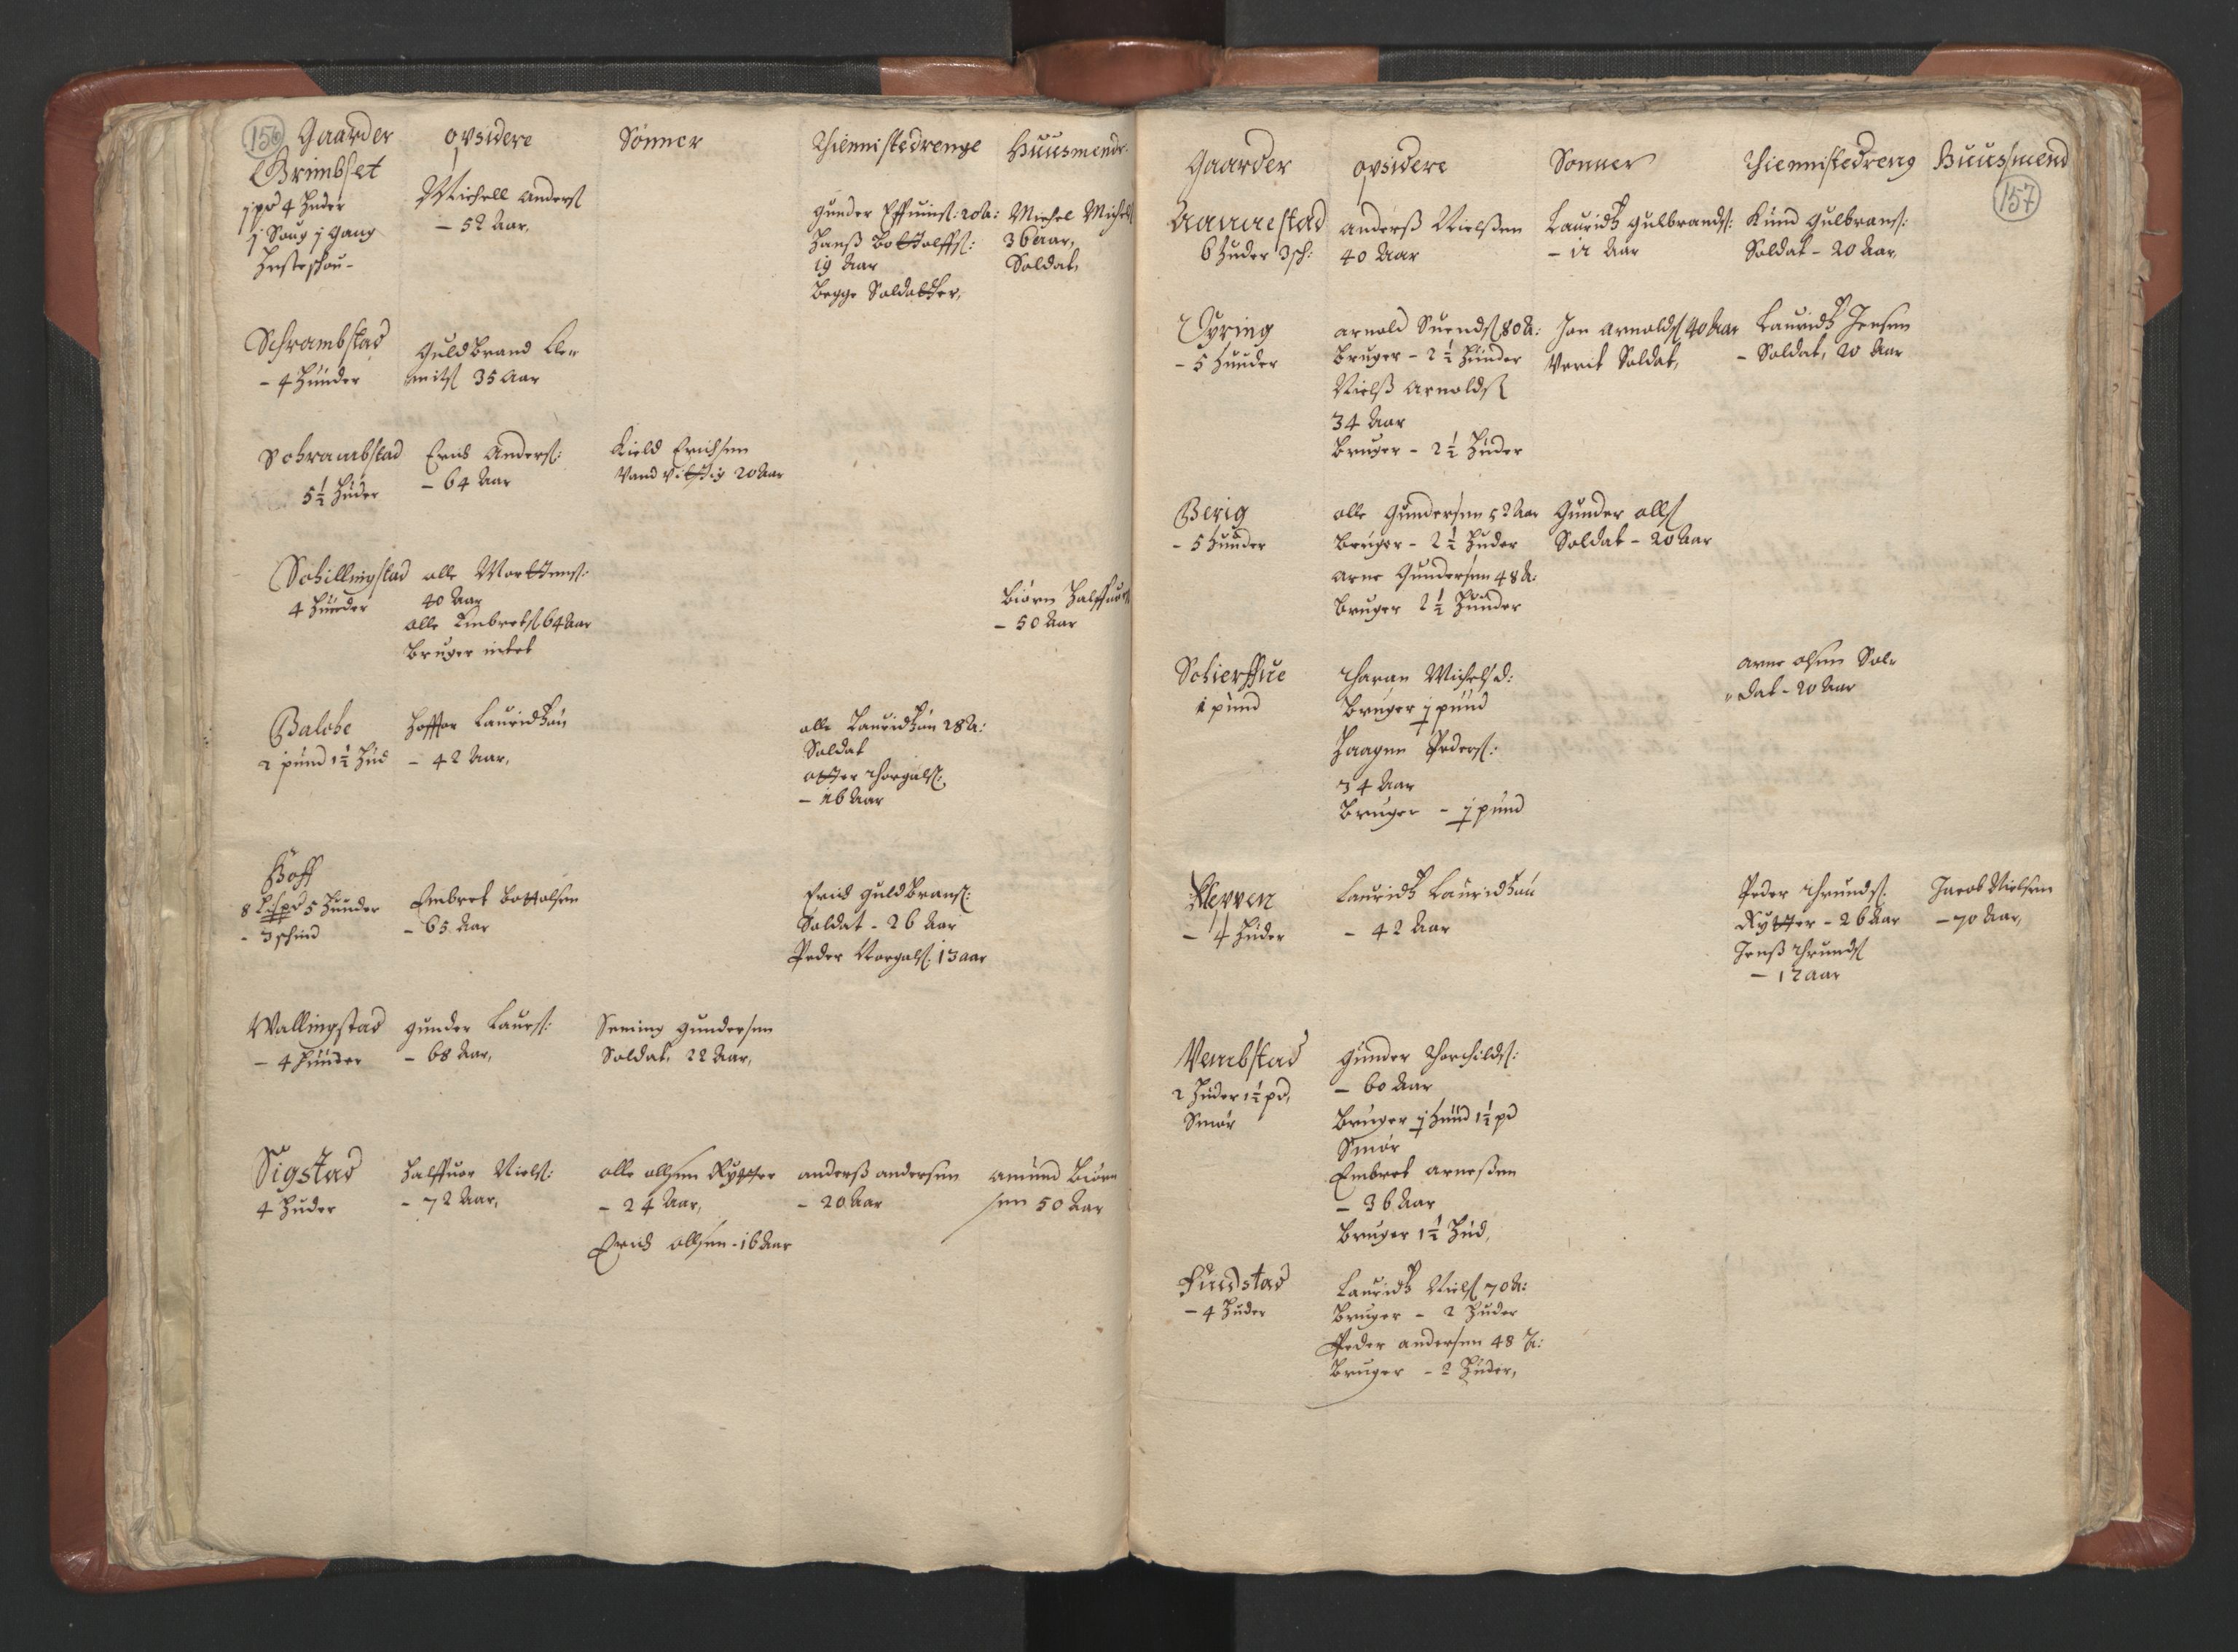 156 Gaarder opsidere Sønner Thiennistedrenge Huusmendr.
Grimbset
jpd 4 Huder
j Saug j Gang
Michell Anders
– 52 Aar,
gunder 20 A:
Hanß
19 Aar
Begge Soldatter,
Michel Michels
36 aar,
Soldat,
Schrambstad
– 4 Hunder
Guldbrand Cle„
mits 35 Aar
Schrambstad
5½ Huder
Erich Anders:
– 64 Aar
Kield Erichsen
Vand vittig 20 Aar
Schillingstad
4 Huder
olle Mortens:
40 Aar
olle Embrets 64 Aar
Bruger intet
Biørn Halffuors
– 50 Aar
Balche
2 pund 1½ Hud
Lauridtzøn
– 42 Aar,
olle Lauridtzøn 28 A:
Soldat
otter Thorgals:
– 16 Aar
Hoff
8 Lispd 5 Hunder
– 3 schind
Embret Bottolsen
– 65 Aar
Erich Guldbrans:
Soldat – 26 Aar
Peder Torgals: 13 aar
Wallingstad
– 4 Hunder
gunder Laurs:
– 68 Aar,
Seming gundersen
Soldat, 22 Aar,
Sigstad
4 Huder
Halffuor Niels:
– 72 Aar,
olle ollsen Rytter
– 24 Aar,
Erich ollsen – 16 Aar
anderß andersen
– 20 Aar
amund Biørn
sen 50 Aar
Gaarder opsidere Sønner Thiennistedreng Huusmend
157
6 Huder 3 sch:
anderß Nielsen
40 Aar
Lauridtz gulbrands:
– 12 Aar
Knud Gulbrans:
Soldat – 20 Aar,
– 5 Huder
arnold Suends 80 A:
Bruger – 2½ Hunder
Nielß Arnolds
34 Aar
Bruger – 2½ Huder
Jon Arnolds 40 Aar
Verit Soldat,
Lauridtz Jensen
– Soldat, 20 Aar
Berig
– 5 Hunder
olle Gundersen 52 Aar
Bruger – 2½ Huder
Arne Gundersen 48 A:
Bruger 2½ Hunder
Gunder olls
Soldat – 20 Aar
Schierffue
1 pund
Tharan Michelsd:
Bruger j pund
Haagen Peders:
34 Aar
Bruger – j pund
arne olsen Sol„
„dat – 20 Aar
Klepven
– 4 Huder
Lauridtz Lauridtzøn
– 42 Aar
Peder Thrunds:
Rytter – 26 Aar
Jenß Thrunds
– 12 aar
Jacob Nielsen
– 70 Aar,
Vembstad
2 Huder 1½ pd,
Smør
Gunder Thorchilds:
– 60 Aar
Bruger j Hund 1½ pd
Smør
Embret arneßen
– 36 Aar
Bruger 1½ Hud,
Findstad
– 4 Huder
Lauridtz Niels 70 A:
Bruger – 2 Huder
Peder andersen 48 A:
Bruger – 2 Huder,